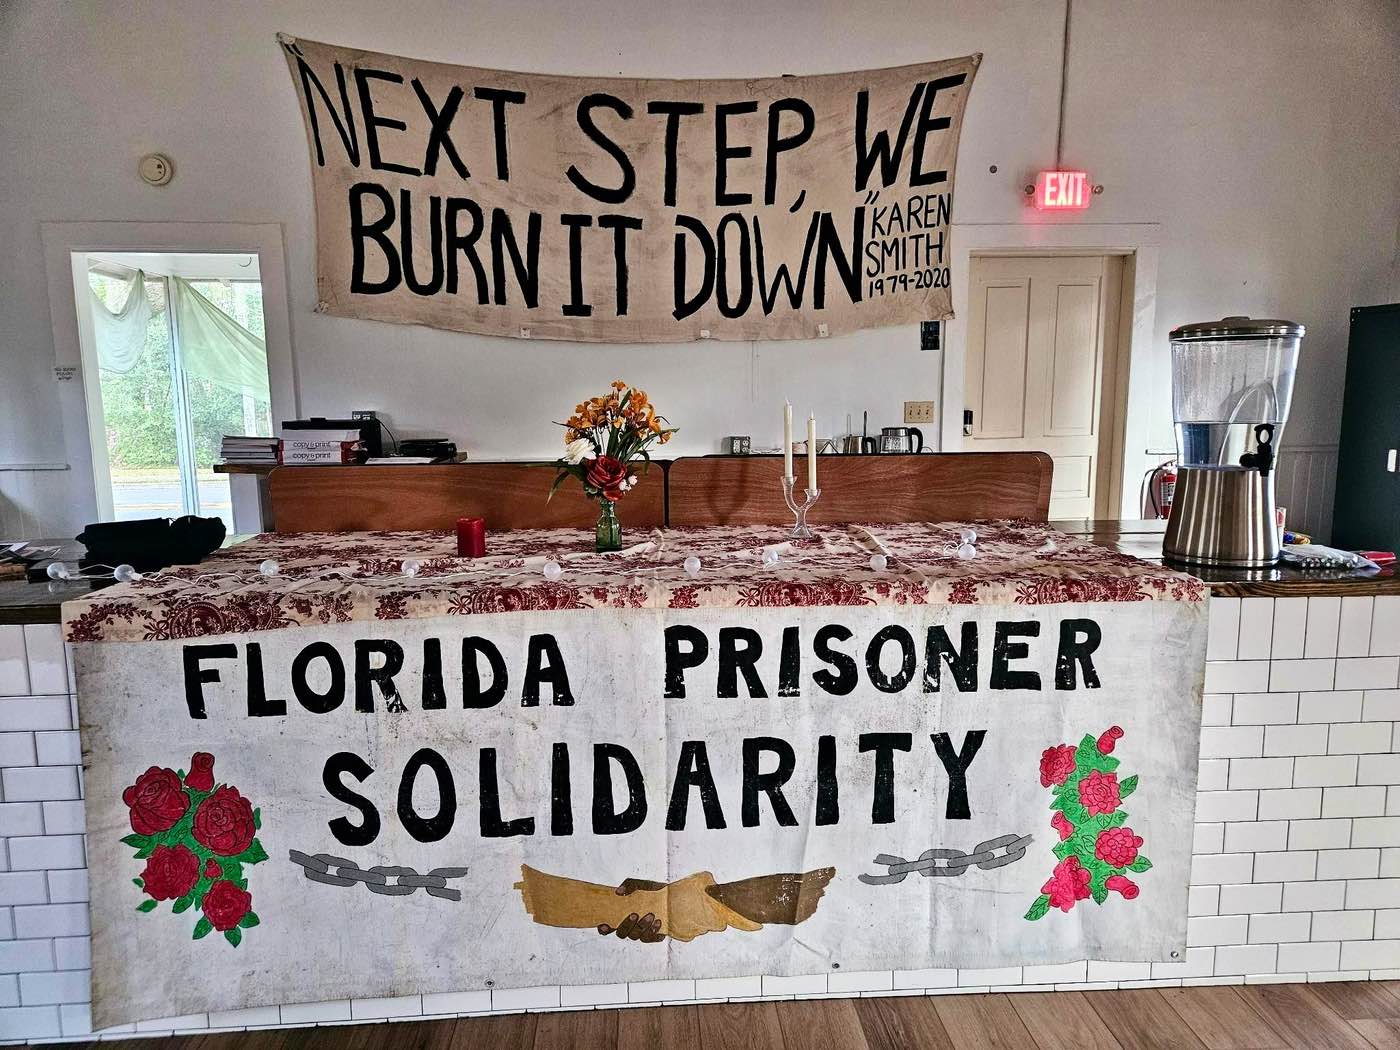 "NEXT STEP, WE
BURN IT DOWN"
KAREN
SMITH
1979-2020
EXIT
copy&print
copy&print
FLORIDA PRISONER
SOLIDARITY